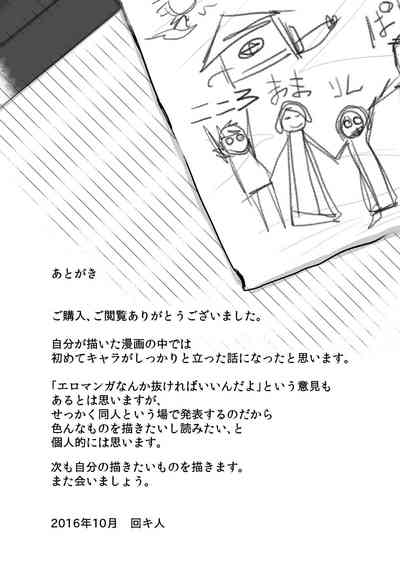 ぱ
こころ
おま
りん
あとがき
ご購入、ご閲覧ありがとうございました。
自分が描いた漫画の中では
初めてキャラがしっかりと立った話になったと思います。
「エロマンガなんか抜ければいいんだよ」という意見も
あるとは思いますが、
せっかく同人という場で発表するのだから
色んなものを描きたいし読みたい、と
個人的には思います。
次も自分の描きたいものを描きます。
また会いましょう。
2016年10月 回キ人